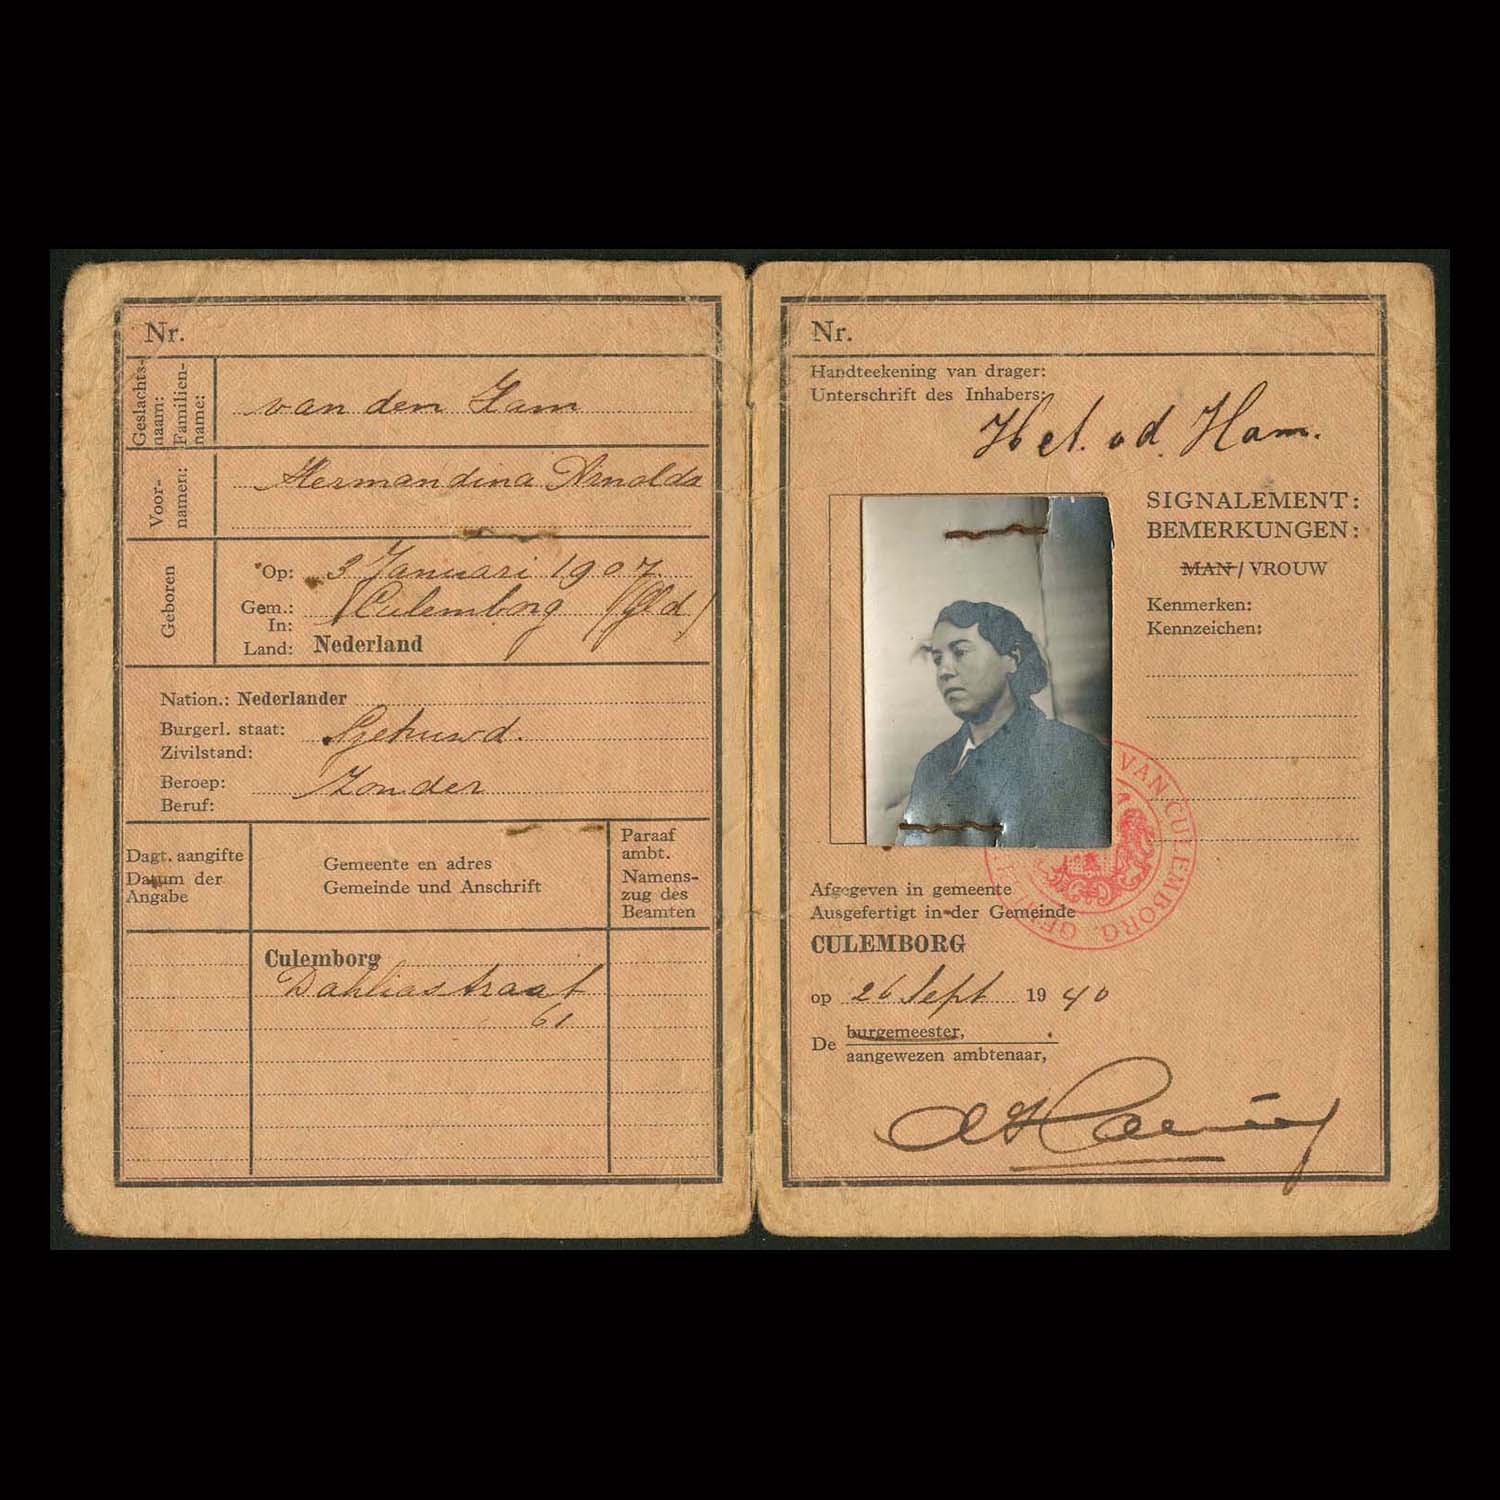 Nr.
Geslachts-
naam:
Familien-
name:
van den Ham
Voor-
namen:
Hermandina Arnolda
Geboren
Op: 3 Januari 1907
Gem.: Culemborg (Gld)
In:
Land: Nederland
Nation.: Nederlander
Burgerl. staat: Gehuwd.
Zivilstand:
Beroep: Zonder
Beruf:
Dagt. aangifte
Datum der
Angabe
Gemeente en adres
Gemeinde und Anschrift
Paraaf
ambt.
Namens-
zug des
Beamten
Culemborg
Dahliastraat
61
Nr.
Handteekening van drager:
Unterschrift des Inhabers:
Ham.
SIGNALEMENT:
BEMERKUNGEN:
MAN / VROUW
Kenmerken:
Kennzeichen:
VAN CULEMBORG
Afgegeven in gemeente
Ausgefertigt in der Gemeinde
CULEMBORG
op 26 Sept 1940
De burgemeester,
aangewezen ambtenaar,